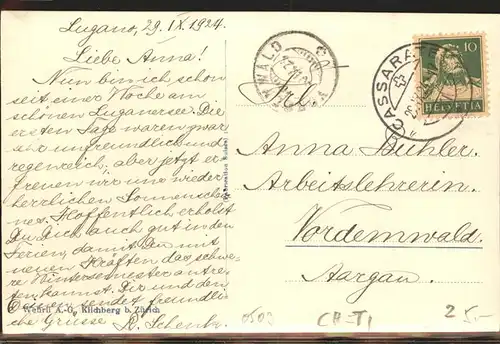 Lugano, 29. IX. 1924.
Liebe Anna!
Nun bin ich schon
seit einer Woche am
schönen Luganersee. Die
ersten Tage waren zwar
sehr unfreundlich und
regenreich, aber jetzt er-
freuen wir uns wieder
herrlichen Sonnenschei-
nes. Hoffentlich erholst
Du Dich auch gut in den
Ferien, damit Du mit
neuen Kräften das schwe-
re Wintersemester antre-
ten kannst. Dir und den
Deinen sendet freundli-
che Grüsse R. Schenk
Wehrli A.-G., Kilchberg b. Zürich
WALD
CASSARATE
10
HELVETIA
Frl.
Anna Bühler
Arbeitslehrerin
Vordemwald
Aargau.
0509
CH-TI
2
5.-